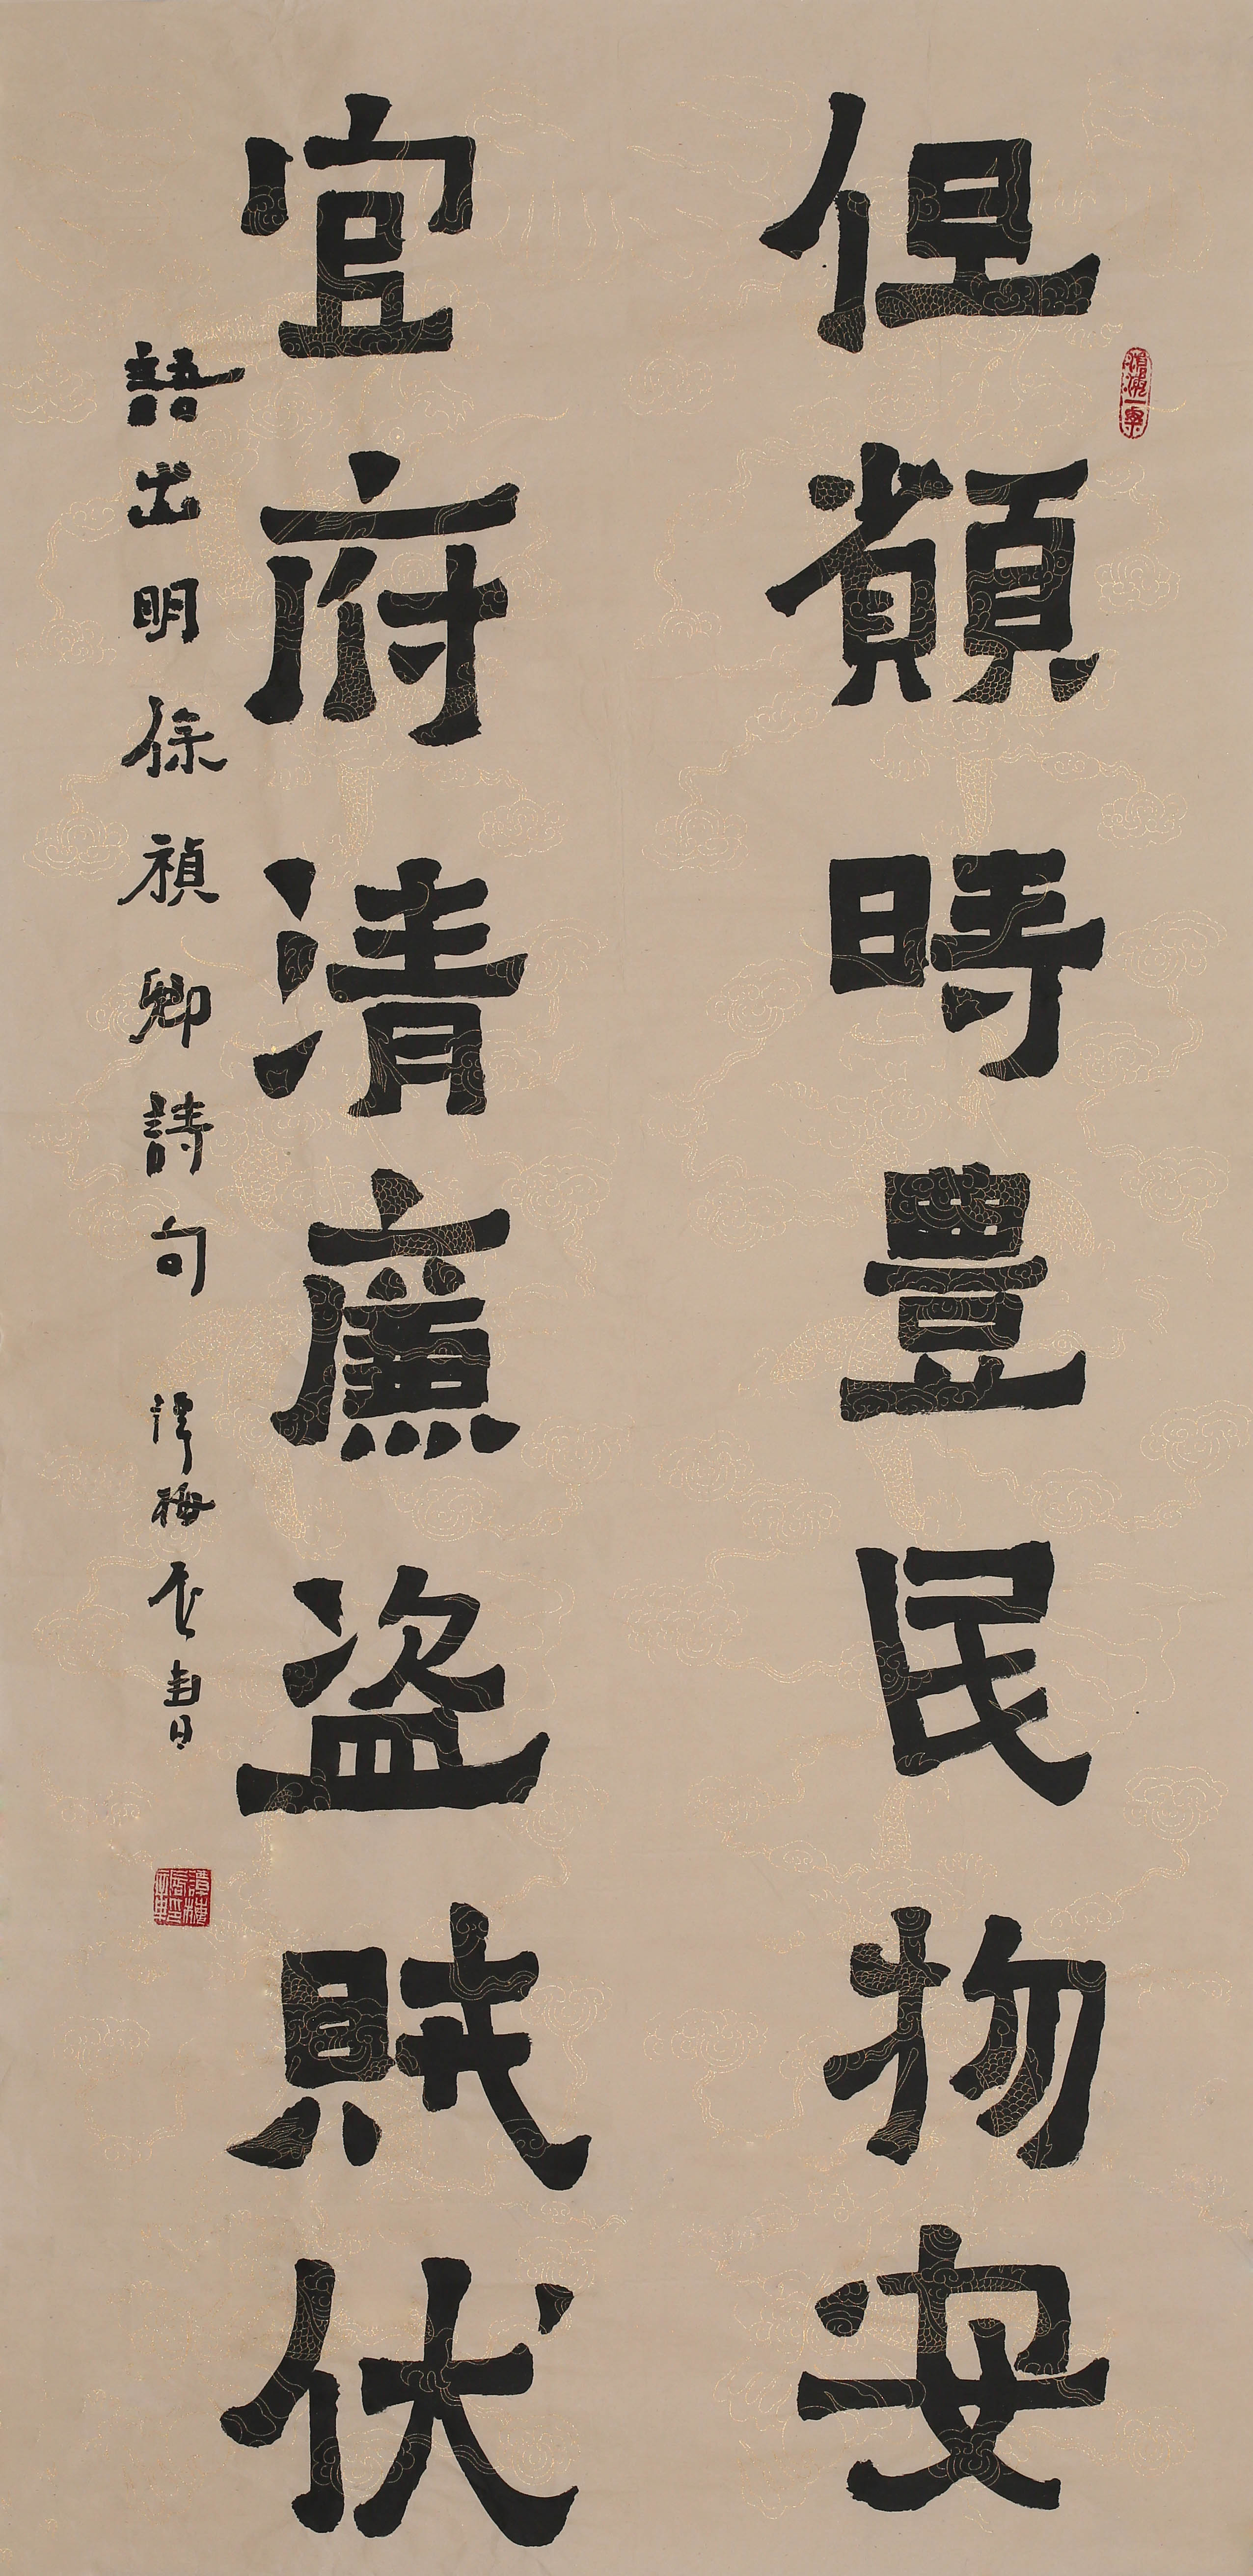 滄海一粟
但願時豐民物安
官府清廉盜賊伏
語出明徐禎卿詩句 譚梅書